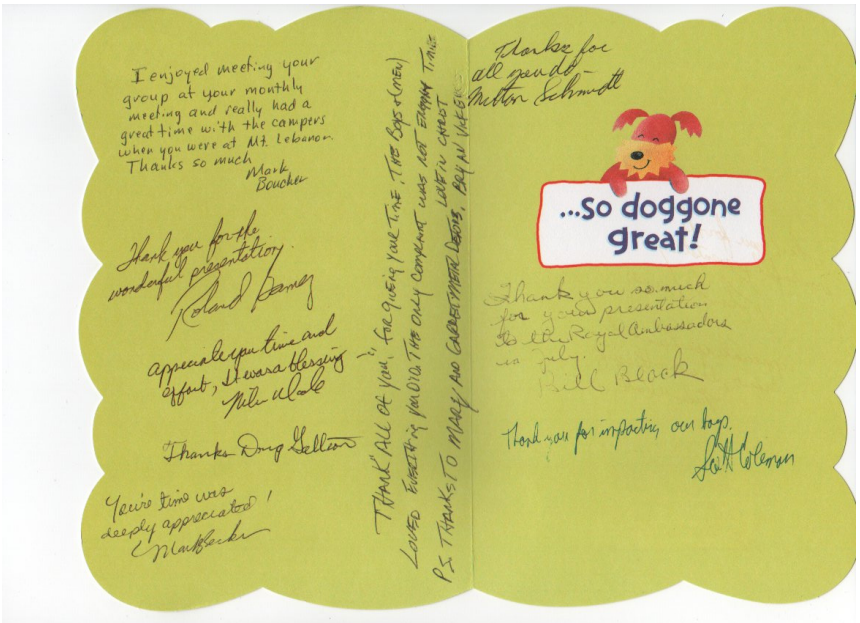 I enjoyed meeting your
group at your monthly
meeting and really had a
great time with the campers
when you were at Mt. Lebanon.
Thanks so much
Mark
Boucher
Thank you for the
wonderful presentation.
Roland
appreciate your time and
effort, It was a blessing
Thanks Doug
You're time was
deeply appreciated!
Mark Becker
"THANK" ALL OF YOU, FOR GIVING YOUR TIME, THE BOYS & (MEN)
LOVED EVERYTHING YOU DID. THE ONLY COMPLAINT WAS NOT ENOUGH TIME
LOVE IN CHRIST
P.S. THANKS TO MARY AND GARRET METAL DETORS, BRYAN
Thanks for
all you do
Milton Schmidt
...so doggone
great!
Thank you so much
for your presentation
to the Royal Ambassadors
in July.
Bill Black
Thank you for impacting our boys.
Scott Coleman